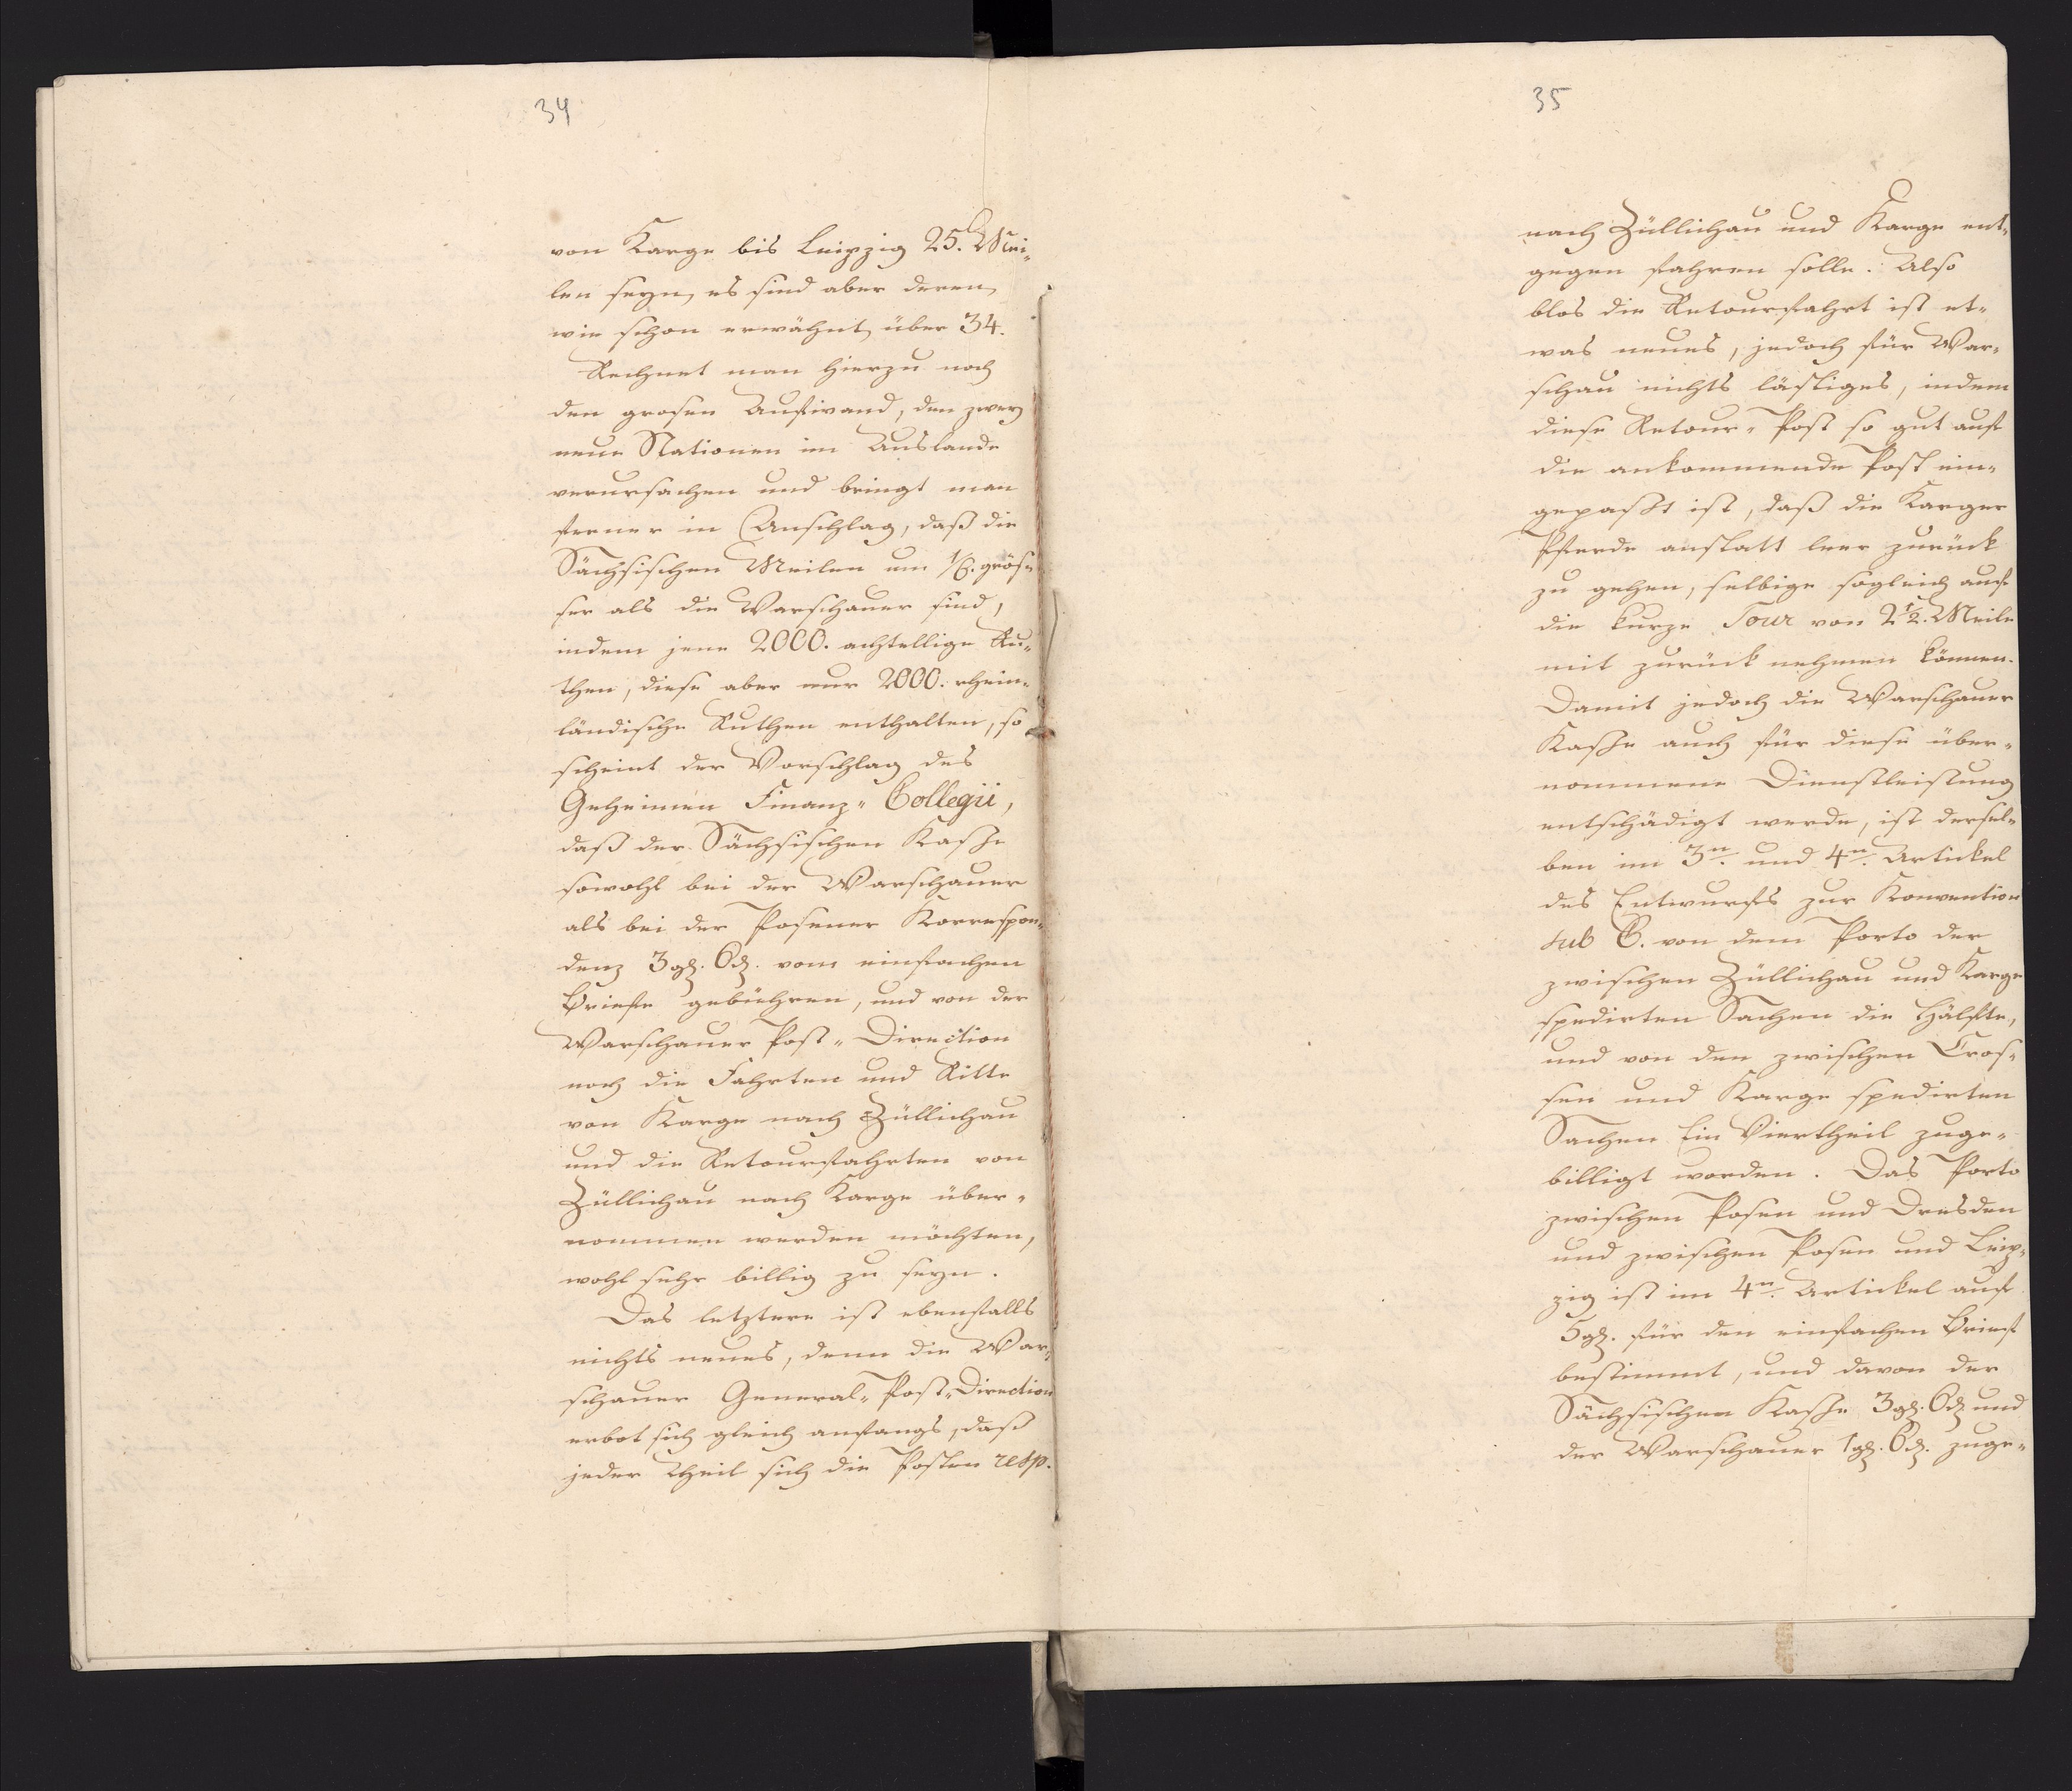 34
von Karge bis Leipzig 25. Mei-
len seyn, es sind aber deren,
wie schon erwähnt, über 34.
Rechnet man hierzu noch
den grosen Aufwand, den zwey
neue Stationen im Auslande
verursachen und bringt man
ferner in Anschlag, daß die
Sächsischen Meilen um 1/6. grös-
ser als die Warschauer sind,
indem jene 2000. achtellige Ru-
then, diese aber nur 2000. rhein-
ländische Ruthen enthalten, so
scheint der Vorschlag des
Geheimen Finanz-Collegii,
daß der Sächsischen Kasse
sowohl bei der Warschauer
als bei der Posener Korrespon-
denz 3 gl. 6 d. vom einfachen
Briefe gebühren, und von der
Warschauer Post-Direction
noch die Fahrten und Ritte
von Karge nach Züllichau
und die Retourfahrten von
Züllichau nach Karge über-
nommen werden möchten,
wohl sehr billig zu seyn.
Das letztere ist ebenfalls
nichts neues, denn die War-
schauer General-Post-Direction
erbot sich gleich anfangs, daß
jeder Theil sich die Posten resp.
35
nach Züllichau und Karge ent-
gegen fahren solle. Also
blos die Retourfahrt ist et-
was neues, jedoch für War-
schau nichts lästiges, indem
diese Retour-Post so gut auf
die ankommende Post ein-
gepaßt ist, daß die Karger
Pferde anstatt leer zurück
zu gehen, selbige sogleich auf
die kurze Tour von 2 1/2. Meile
mit zurück nehmen können.
Damit jedoch die Warschauer
Kasse auch für diese über-
nommene Dienstleistung
entschädigt werde, ist dersel-
ben im 3n. und 4n. Artickel
des Entwurfs zur Konvention
sub C. von dem Porto der
zwischen Züllichau und Karge
spedirten Sachen die Hälfte,
und von den zwischen Cros-
sen und Karge spedirten
Sachen Ein Viertheil zuge-
billigt worden. Das Porto
zwischen Posen und Dresden
und zwischen Posen und Leip-
zig ist im 4n. Artickel auf
5 gl. für den einfachen Brief
bestimmt, und davon der
Sächsischen Kasse 3 gl. 6 d. und
der Warschauer 1 gl. 6 d. zuge-